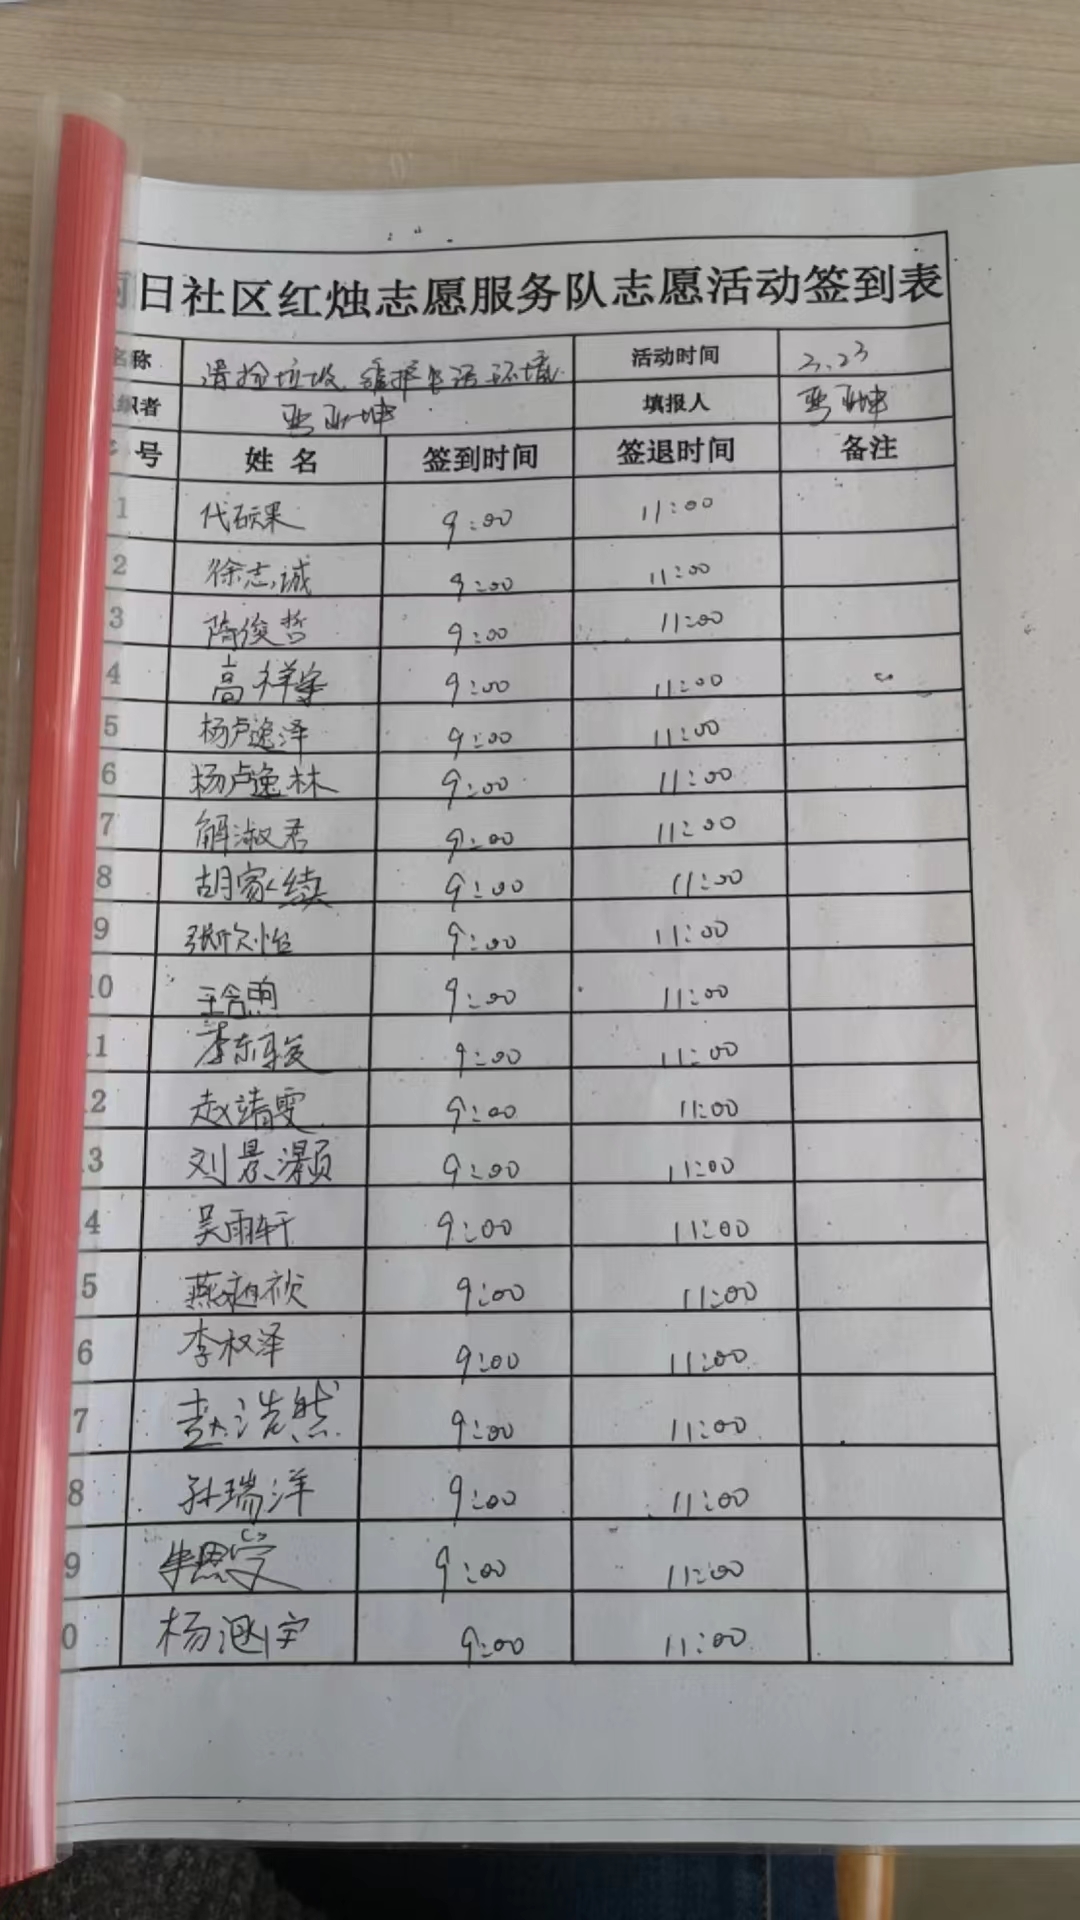 日社区红烛志愿服务队志愿活动签到表
名称 清捡垃圾 维护生活环境 活动时间 3.23
织者 填报人
号 姓名 签到时间 签退时间 备注
1 代硕果 9:00 11:00
2 徐志诚 9:00 11:00
3 隋俊哲 9:00 11:00
4 高祥 9:00 11:00
5 杨卢逸泽 9:00 11:00
6 杨卢逸林 9:00 11:00
7 解淑君 9:00 11:00
8 胡家续 9:00 11:00
9 张欣怡 9:00 11:00
10 王 9:00 11:00
1 李东骏 9:00 11:00
2 赵靖雯 9:00 11:00
3 刘景灏 9:00 11:00
4 吴雨轩 9:00 11:00
5 燕 祯 9:00 11:00
6 李权泽 9:00 11:00
7 赵浩然 9:00 11:00
8 孙瑞洋 9:00 11:00
9 9:00 11:00
0 杨涵宇 9:00 11:00